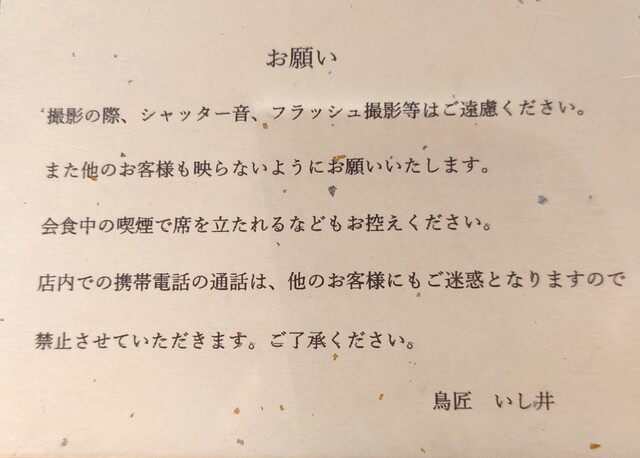 お願い
撮影の際、シャッター音、フラッシュ撮影等はご遠慮ください。
また他のお客様も映らないようにお願いいたします。
会食中の喫煙で席を立たれるなどもお控えください。
店内での携帯電話の通話は、他のお客様にもご迷惑となりますので
禁止させていただきます。ご了承ください。
鳥匠　いし井